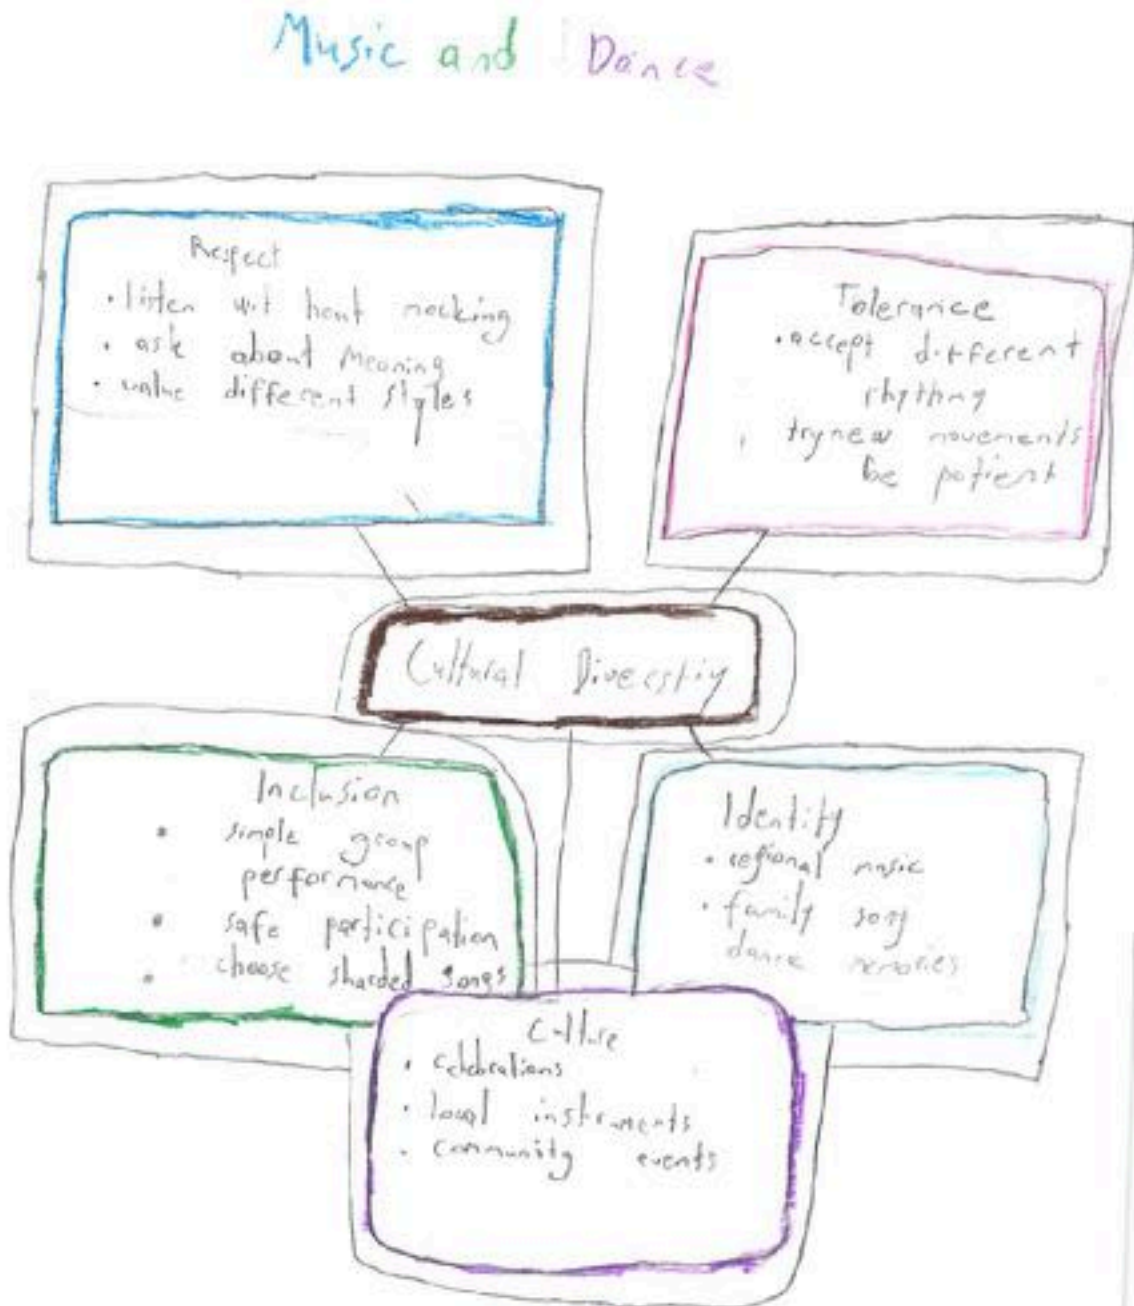 Music and Dance
Respect
• listen wit hout mocking
• ask about Meaning
• value different styles
Tolerance
• accept different
rhythmy
trynew movements
be patient
Cultural Diverstiy
Inclusion
• simple group
performance
• safe participation
• choose sharded songs
Identity
• regional music
• family song
dance memories
Culture
• celebrations
• local instruments
• community events